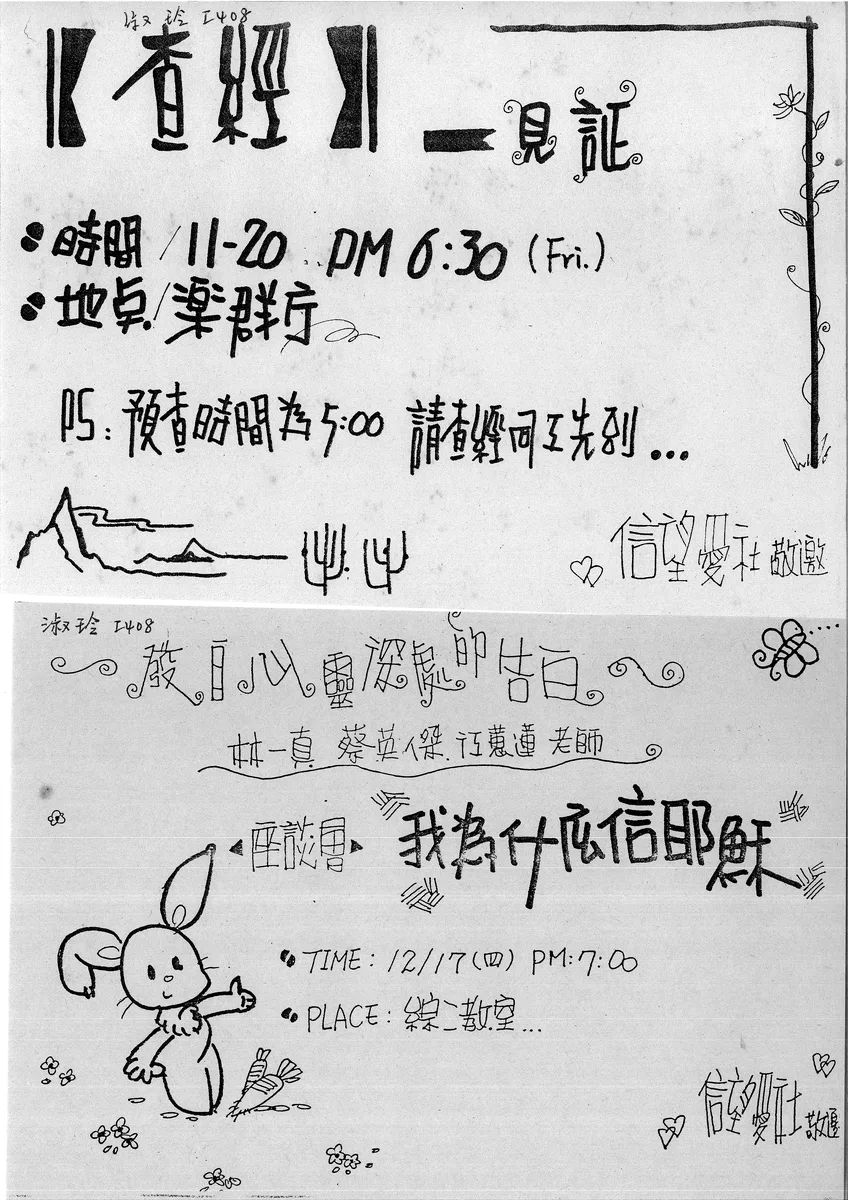 淑玲 I408
【查經】
一見証
時間/11-20 PM 6:30 (Fri.)
地点/楽群庁
PS: 預查時間為5:00 請查經同工先到...
信望愛社 敬邀
淑玲 I408
發自心靈深處的告白
林一真 蔡英傑 江蕙蓮 老師
座談會 我為什庅信耶穌
TIME: 12/17(四) PM:7:00
PLACE: 綜二教室...
信望愛社 敬邀